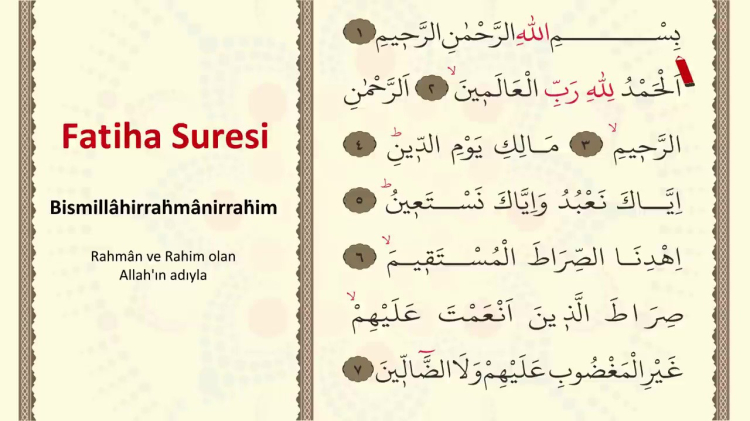 Fatiha Suresi
Bismillâhirraḧmânirraḧim
Rahmân ve Rahim olan
Allah'ın adıyla
بِسْــــــــمِ اللهِ الرَّحْمٰنِ الرَّح۪يمِ ١
اَلْحَمْدُ لِلهِ رَبِّ الْعَالَم۪ينَۙ ٢ اَلرَّحْمٰنِ
الرَّح۪يمِۙ ٣ مَـالِكِ يَوْمِ الدّ۪ينِۜ ٤
اِيَّـــاكَ نَعْبُدُ وَاِيَّاكَ نَسْــتَع۪ينُۜ ٥
اِهْدِنَــا الصِّرَاطَ الْمُسْــتَق۪يــمَۙ ٦
صِرَاطَ الَّذ۪ينَ اَنْعَمْتَ عَلَيْهِمْۙ
غَيْرِ الْمَغْضُوبِ عَلَيْهِمْ وَلَا الضَّٓالّ۪ينَ ٧